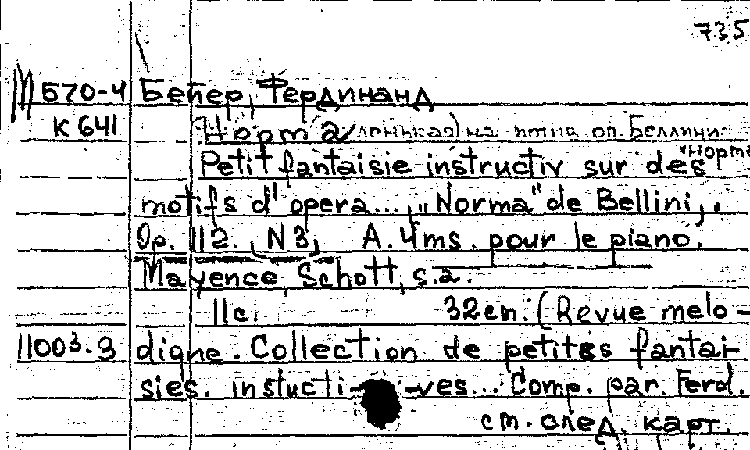 735
М 570-4 Бейер, Фердинанд
К 641 Норма на оп. Беллини
Petit fantaisie instructiv sur des "Норма
motifs d'opera... „Norma" de Bellini,.
Op. 112. N3, A. 4ms. pour le piano.
Mayence, Schott, s.a.
11с. 32cm: (Revue melo-
11003.9 digne. Collection de petites fantai-
sies. instucti- -ves... Comp. par. Ferd.
см. след. карт.